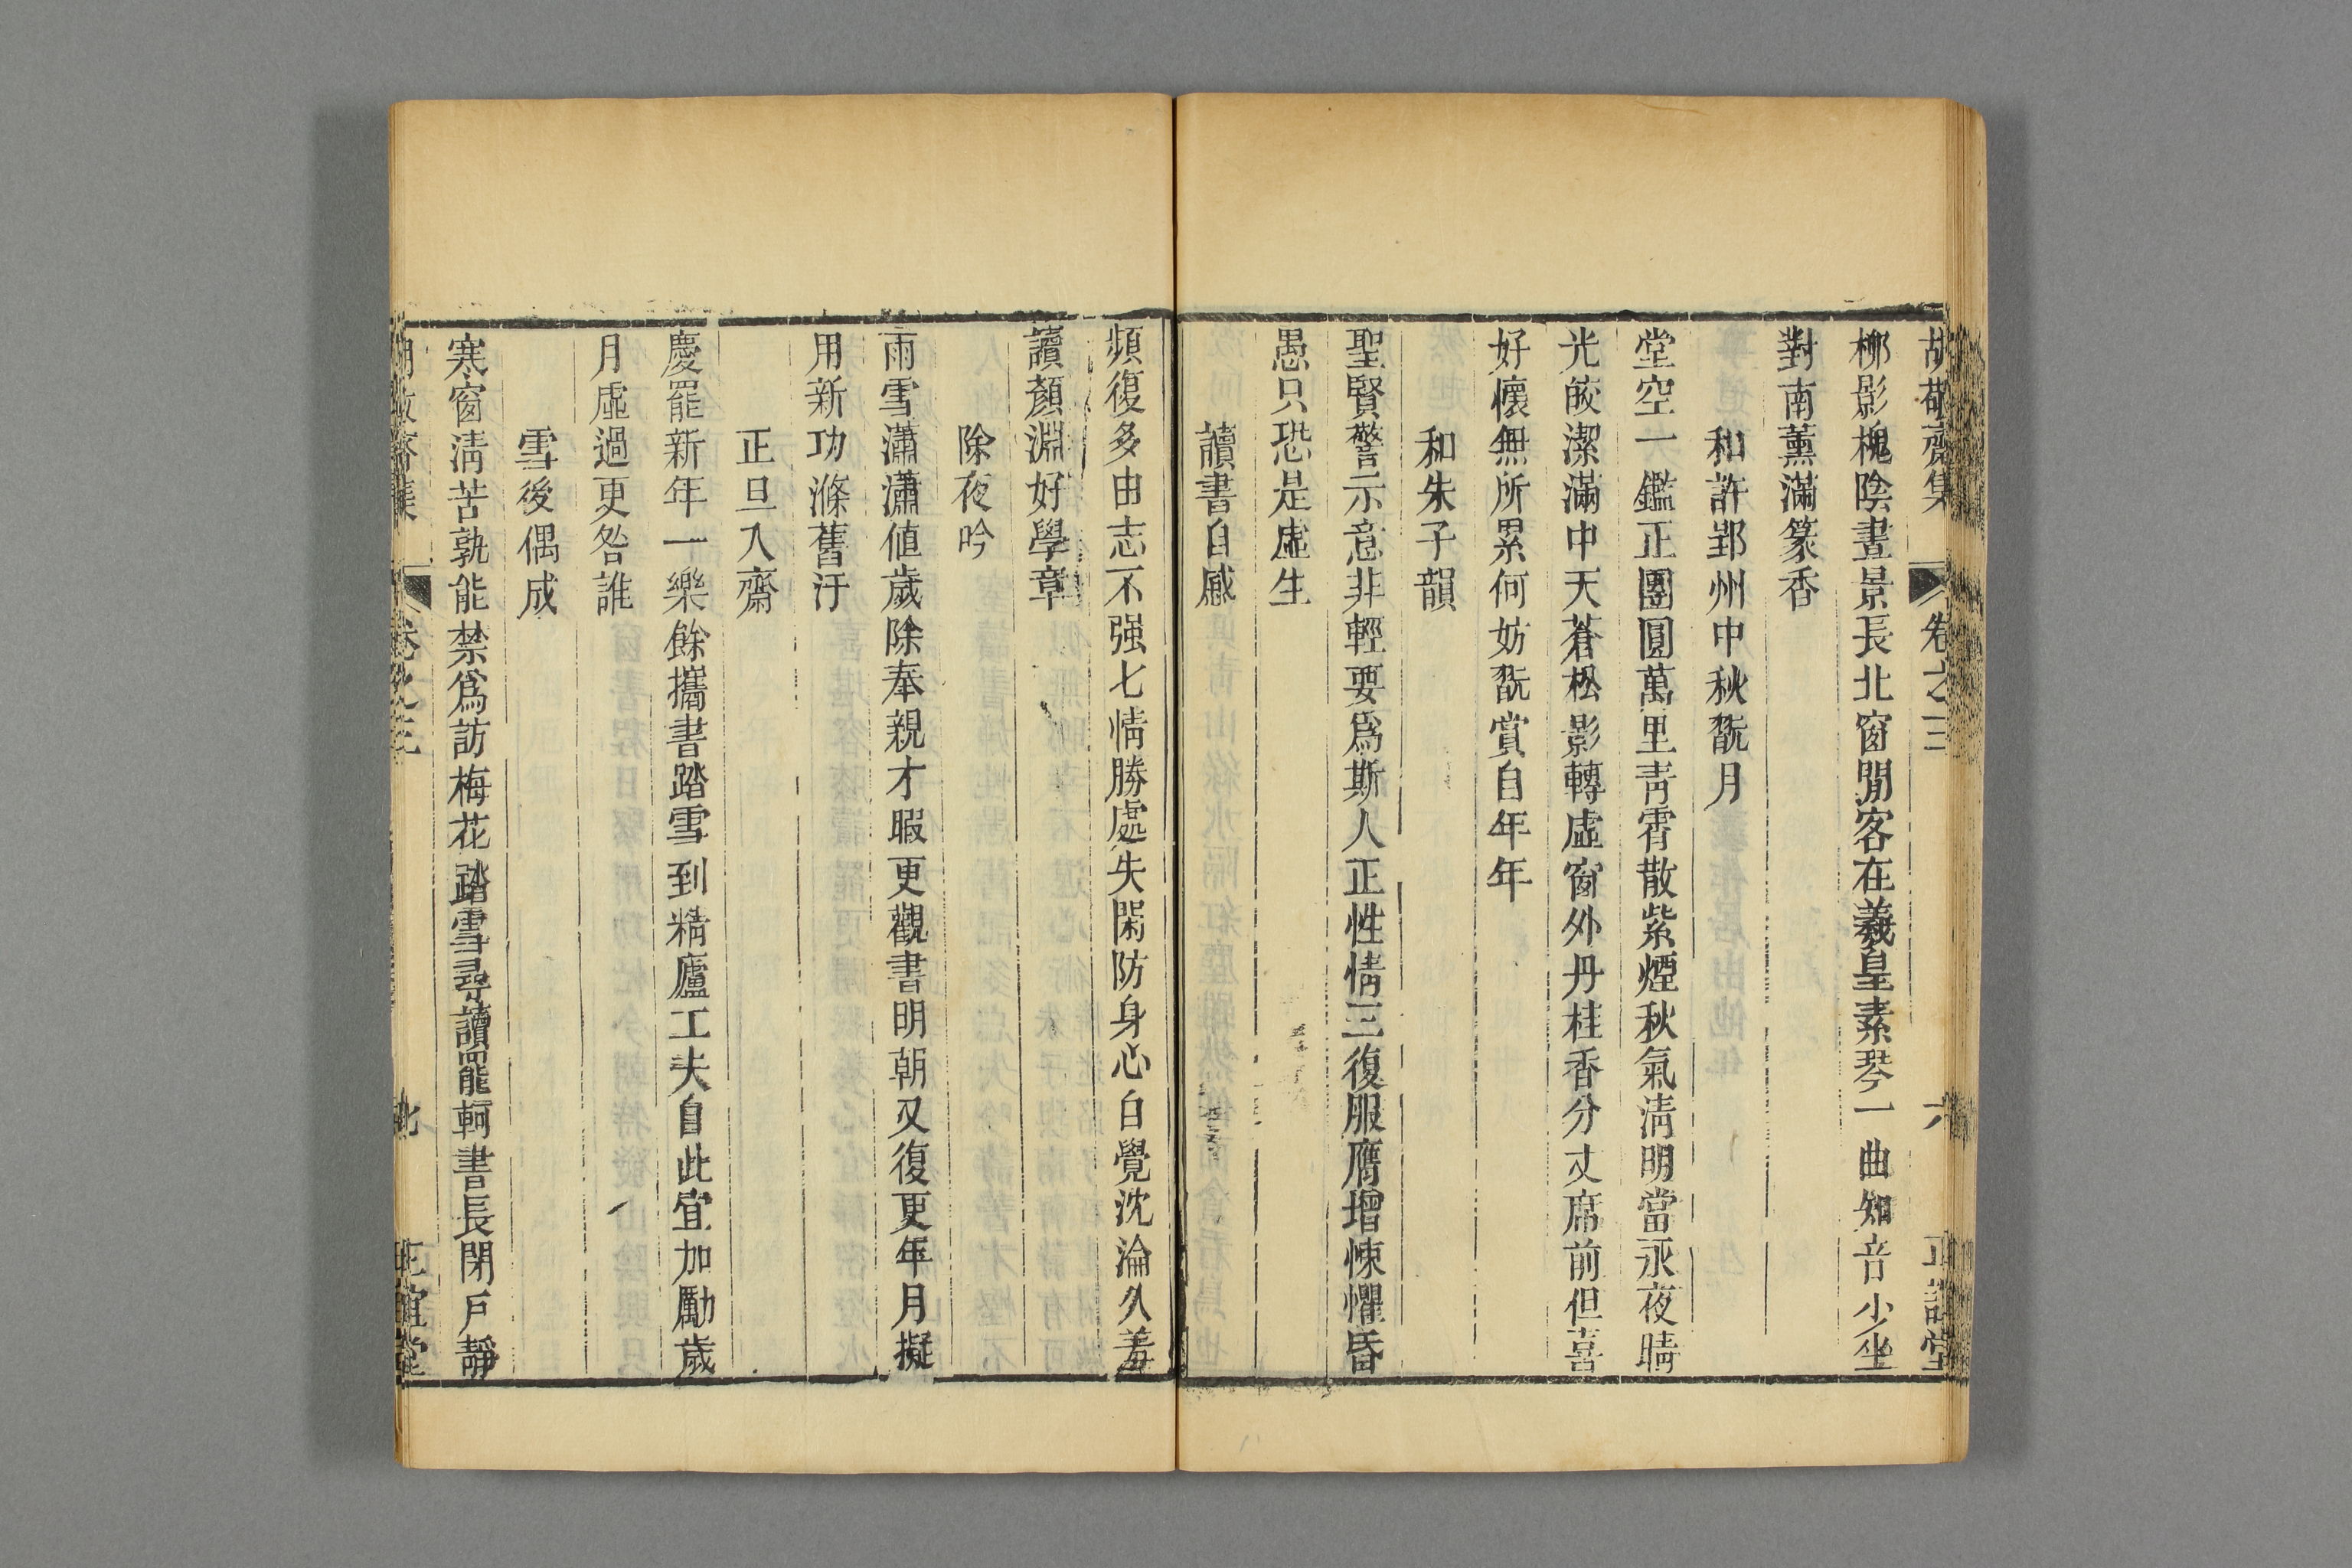 胡敬齋集 卷之三 六 正誼堂
柳影槐陰晝景長北窗閒客在羲皇素琴一曲知音少坐
對南薰滿篆香
和許郢州中秋翫月
堂空一鑑正團圓萬里青霄散紫煙秋氣清明當永夜晴
光皎潔滿中天蒼松影轉虛窗外丹桂香分丈席前但喜
好懷無所累何妨翫賞自年年
和朱子韻
聖賢警示意非輕要爲斯人正性情三復服膺增悚懼昏
愚只恐是虛生
讀書自感
頻復多由志不强七情勝處失閑防身心白覺沈淪久羞
讀顏淵好學章
除夜吟
雨雪瀟瀟値歲除奉親才暇更觀書明朝又復更年月擬
用新功滌舊汙
正旦入齋
慶罷新年一樂餘攜書踏雪到精廬工夫自此宜加勵歲
月虛過更咎誰
雪後偶成
寒窗清苦孰能禁爲訪梅花踏雪尋讀罷軻書長閉戶靜
胡敬齋集 卷之三 正誼堂